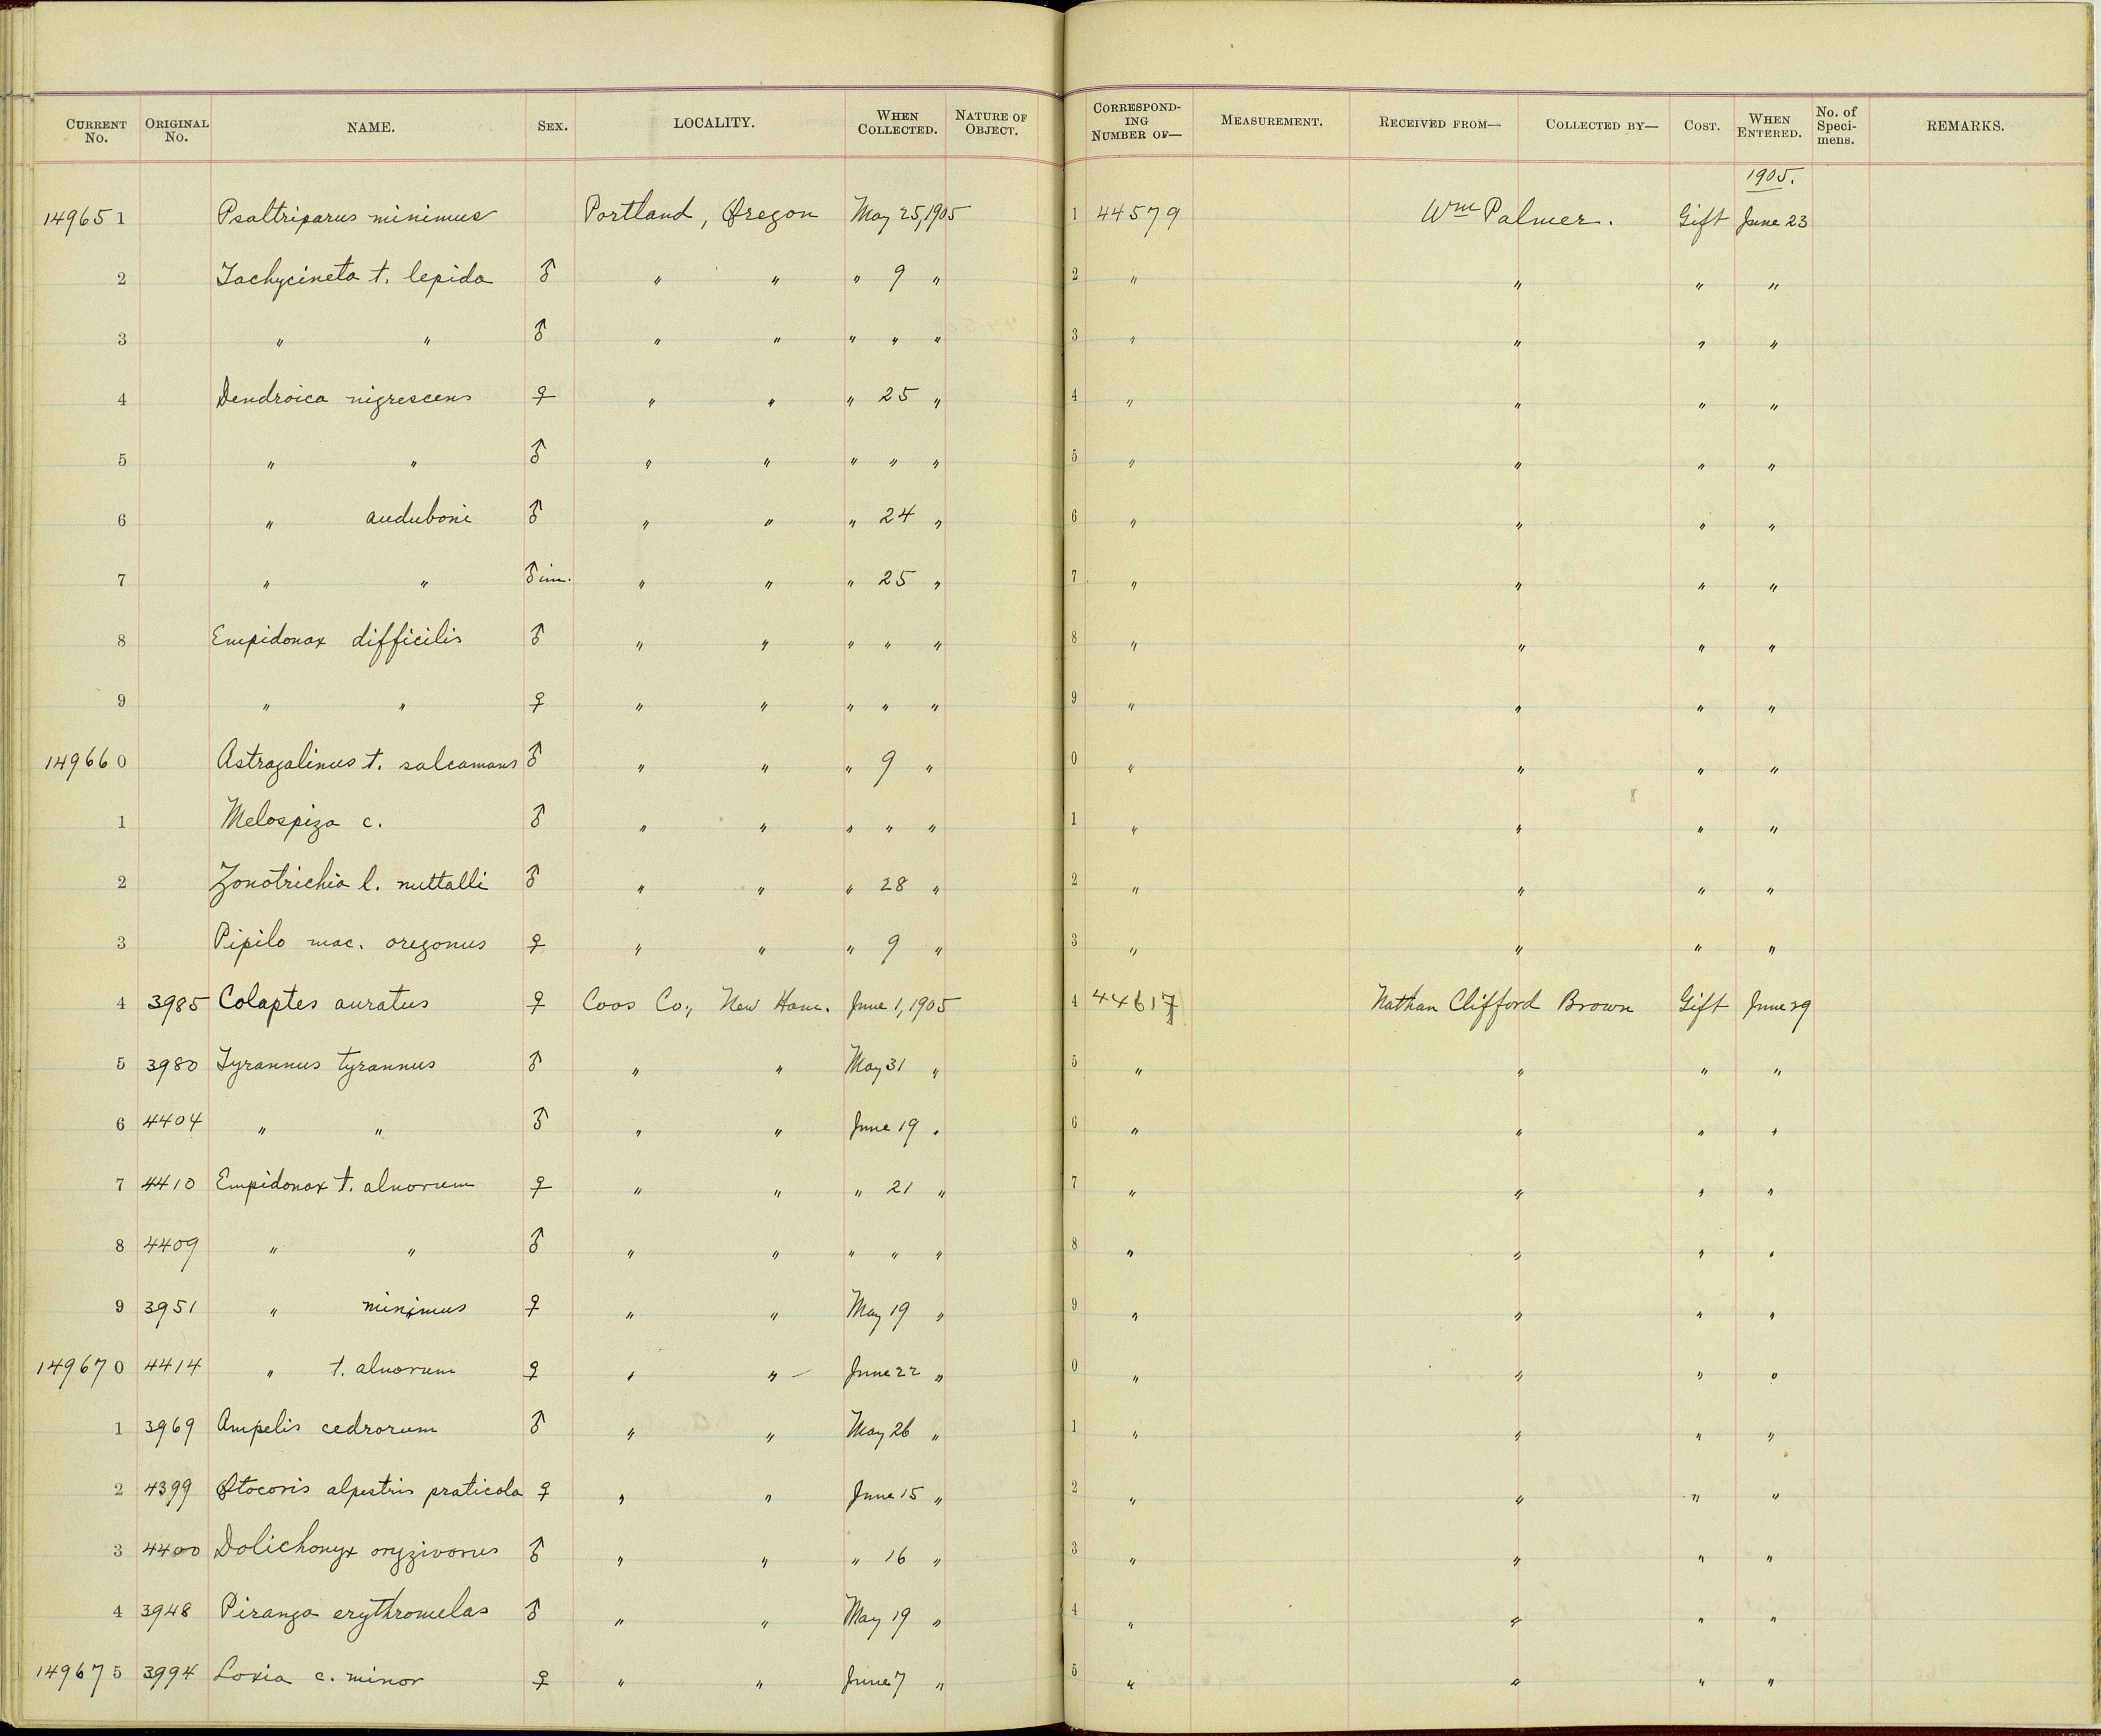 CURRENT No. ORIGINAL No. NAME. SEX. LOCALITY. WHEN COLLECTED. NATURE OF OBJECT. CORRESPONDING NUMBER OF— MEASUREMENT. RECEIVED FROM— COLLECTED BY— COST. WHEN ENTERED. No. of Specimens. REMARKS.
1905.
149651 Psaltriparus minimus Portland, Oregon May 25, 1905 1 44579 Wm Palmer. Gift June 23
2 Tachycineta t. lepida ♂ " " " 9 " 2 " " " "
3 " " ♂ " " " " " 3 " " " "
4 Dendroica nigrescens ♀ " " " 25 " 4 " " " "
5 " " ♂ " " " " " 5 " " " "
6 " auduboni ♂ " " " 24 " 6 " " " "
7 " " ♂ im. " " " 25 " 7 " " " "
8 Empidonax difficilis ♂ " " " " " 8 " " " "
9 " " ♀ " " " " " 9 " " " "
149660 Astragalinus t. salcamans ♂ " " " 9 " 0 " " " "
1 Melospiza c. ♂ " " " " " 1 " " " "
2 Zonotrichia l. nuttalli ♂ " " " 28 " 2 " " " "
3 Pipilo mac. oregonus ♀ " " " 9 " 3 " " " "
4 3985 Colaptes auratus ♀ Coos Co., New Ham. June 1, 1905 4 44617 Nathan Clifford Brown Gift June 29
5 3980 Tyrannus tyrannus ♂ " " May 31 " 5 " " " "
6 4404 " " ♂ " " June 19 " 6 " " " "
7 4410 Empidonax t. alnorum ♀ " " " 21 " 7 " " " "
8 4409 " " ♂ " " " " " 8 " " " "
9 3951 " minimus ♀ " " May 19 " 9 " " " "
149670 4414 " t. alnorum ♀ " " June 22 " 0 " " " "
1 3969 Ampelis cedrorum ♂ " " May 26 " 1 " " " "
2 4399 Otocoris alpestris praticola ♀ " " June 15 " 2 " " " "
3 4400 Dolichonyx oryzivorus ♂ " " " 16 " 3 " " " "
4 3948 Piranga erythromelas ♂ " " May 19 " 4 " " " "
149675 3994 Loxia c. minor ♀ " " June 7 " 5 " " " "